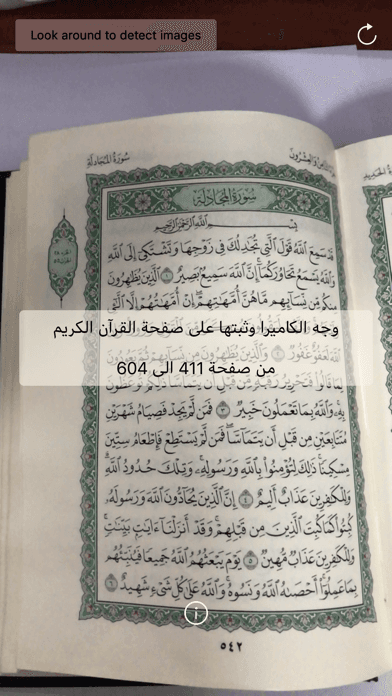 Look around to detect images
سُورَةُ المُجَادلَةِ
سُورَةُ المُجَادلَةِ
بِسْمِ اللَّهِ الرَّحْمَٰنِ الرَّحِيمِ
قَدْ سَمِعَ ٱللَّهُ قَوْلَ ٱلَّتِى تُجَٰدِلُكَ فِى زَوْجِهَا وَتَشْتَكِىٓ إِلَى ٱللَّهِ
وَٱللَّهُ يَسْمَعُ تَحَاوُرَكُمَآ إِنَّ ٱللَّهَ سَمِيعٌۢ بَصِيرٌ ١ ٱلَّذِينَ يُظَٰهِرُونَ
مِنكُم مِّن نِّسَآئِهِم مَّا هُنَّ أُمَّهَٰتِهِمْ إِنْ أُمَّهَٰتُهُمْ إِلَّا ٱلَّٰٓـِٔى
وجه الكاميرا وثبتها على صفحة القرآن الكريم
لَعَفُوٌّ غَفُورٌ ٢ وَٱلَّذِينَ يُظَٰهِرُونَ مِن نِّسَآئِهِمْ ثُمَّ يَعُودُونَ
من صفحة 411 الى 604
بِهِۦ وَٱللَّهُ بِمَا تَعْمَلُونَ خَبِيرٌ ٣ فَمَن لَّمْ يَجِدْ فَصِيَامُ شَهْرَيْنِ
مُتَتَابِعَيْنِ مِن قَبْلِ أَن يَتَمَآسَّا فَمَن لَّمْ يَسْتَطِعْ فَإِطْعَامُ سِتِّينَ
مِسْكِينًا ذَٰلِكَ لِتُؤْمِنُوا۟ بِٱللَّهِ وَرَسُولِهِۦ وَتِلْكَ حُدُودُ ٱللَّهِ
وَلِلْكَٰفِرِينَ عَذَابٌ أَلِيمٌ ٤ إِنَّ ٱلَّذِينَ يُحَآدُّونَ ٱللَّهَ وَرَسُولَهُۥ
كُبِتُوا۟ كَمَا كُبِتَ ٱلَّذِينَ مِن قَبْلِهِمْ وَقَدْ أَنزَلْنَآ ءَايَٰتٍۭ بَيِّنَٰتٍ
وَلِلْكَٰفِرِينَ عَذَابٌ مُّهِينٌ ٥ يَوْمَ يَبْعَثُهُمُ ٱللَّهُ جَمِيعًا فَيُنَبِّئُهُم
بِمَا عَمِلُوٓا۟ أَحْصَىٰهُ ٱللَّهُ وَنَسُوهُ وَٱللَّهُ عَلَىٰ كُلِّ شَىْءٍ شَهِيدٌ ٦
٥٤٢